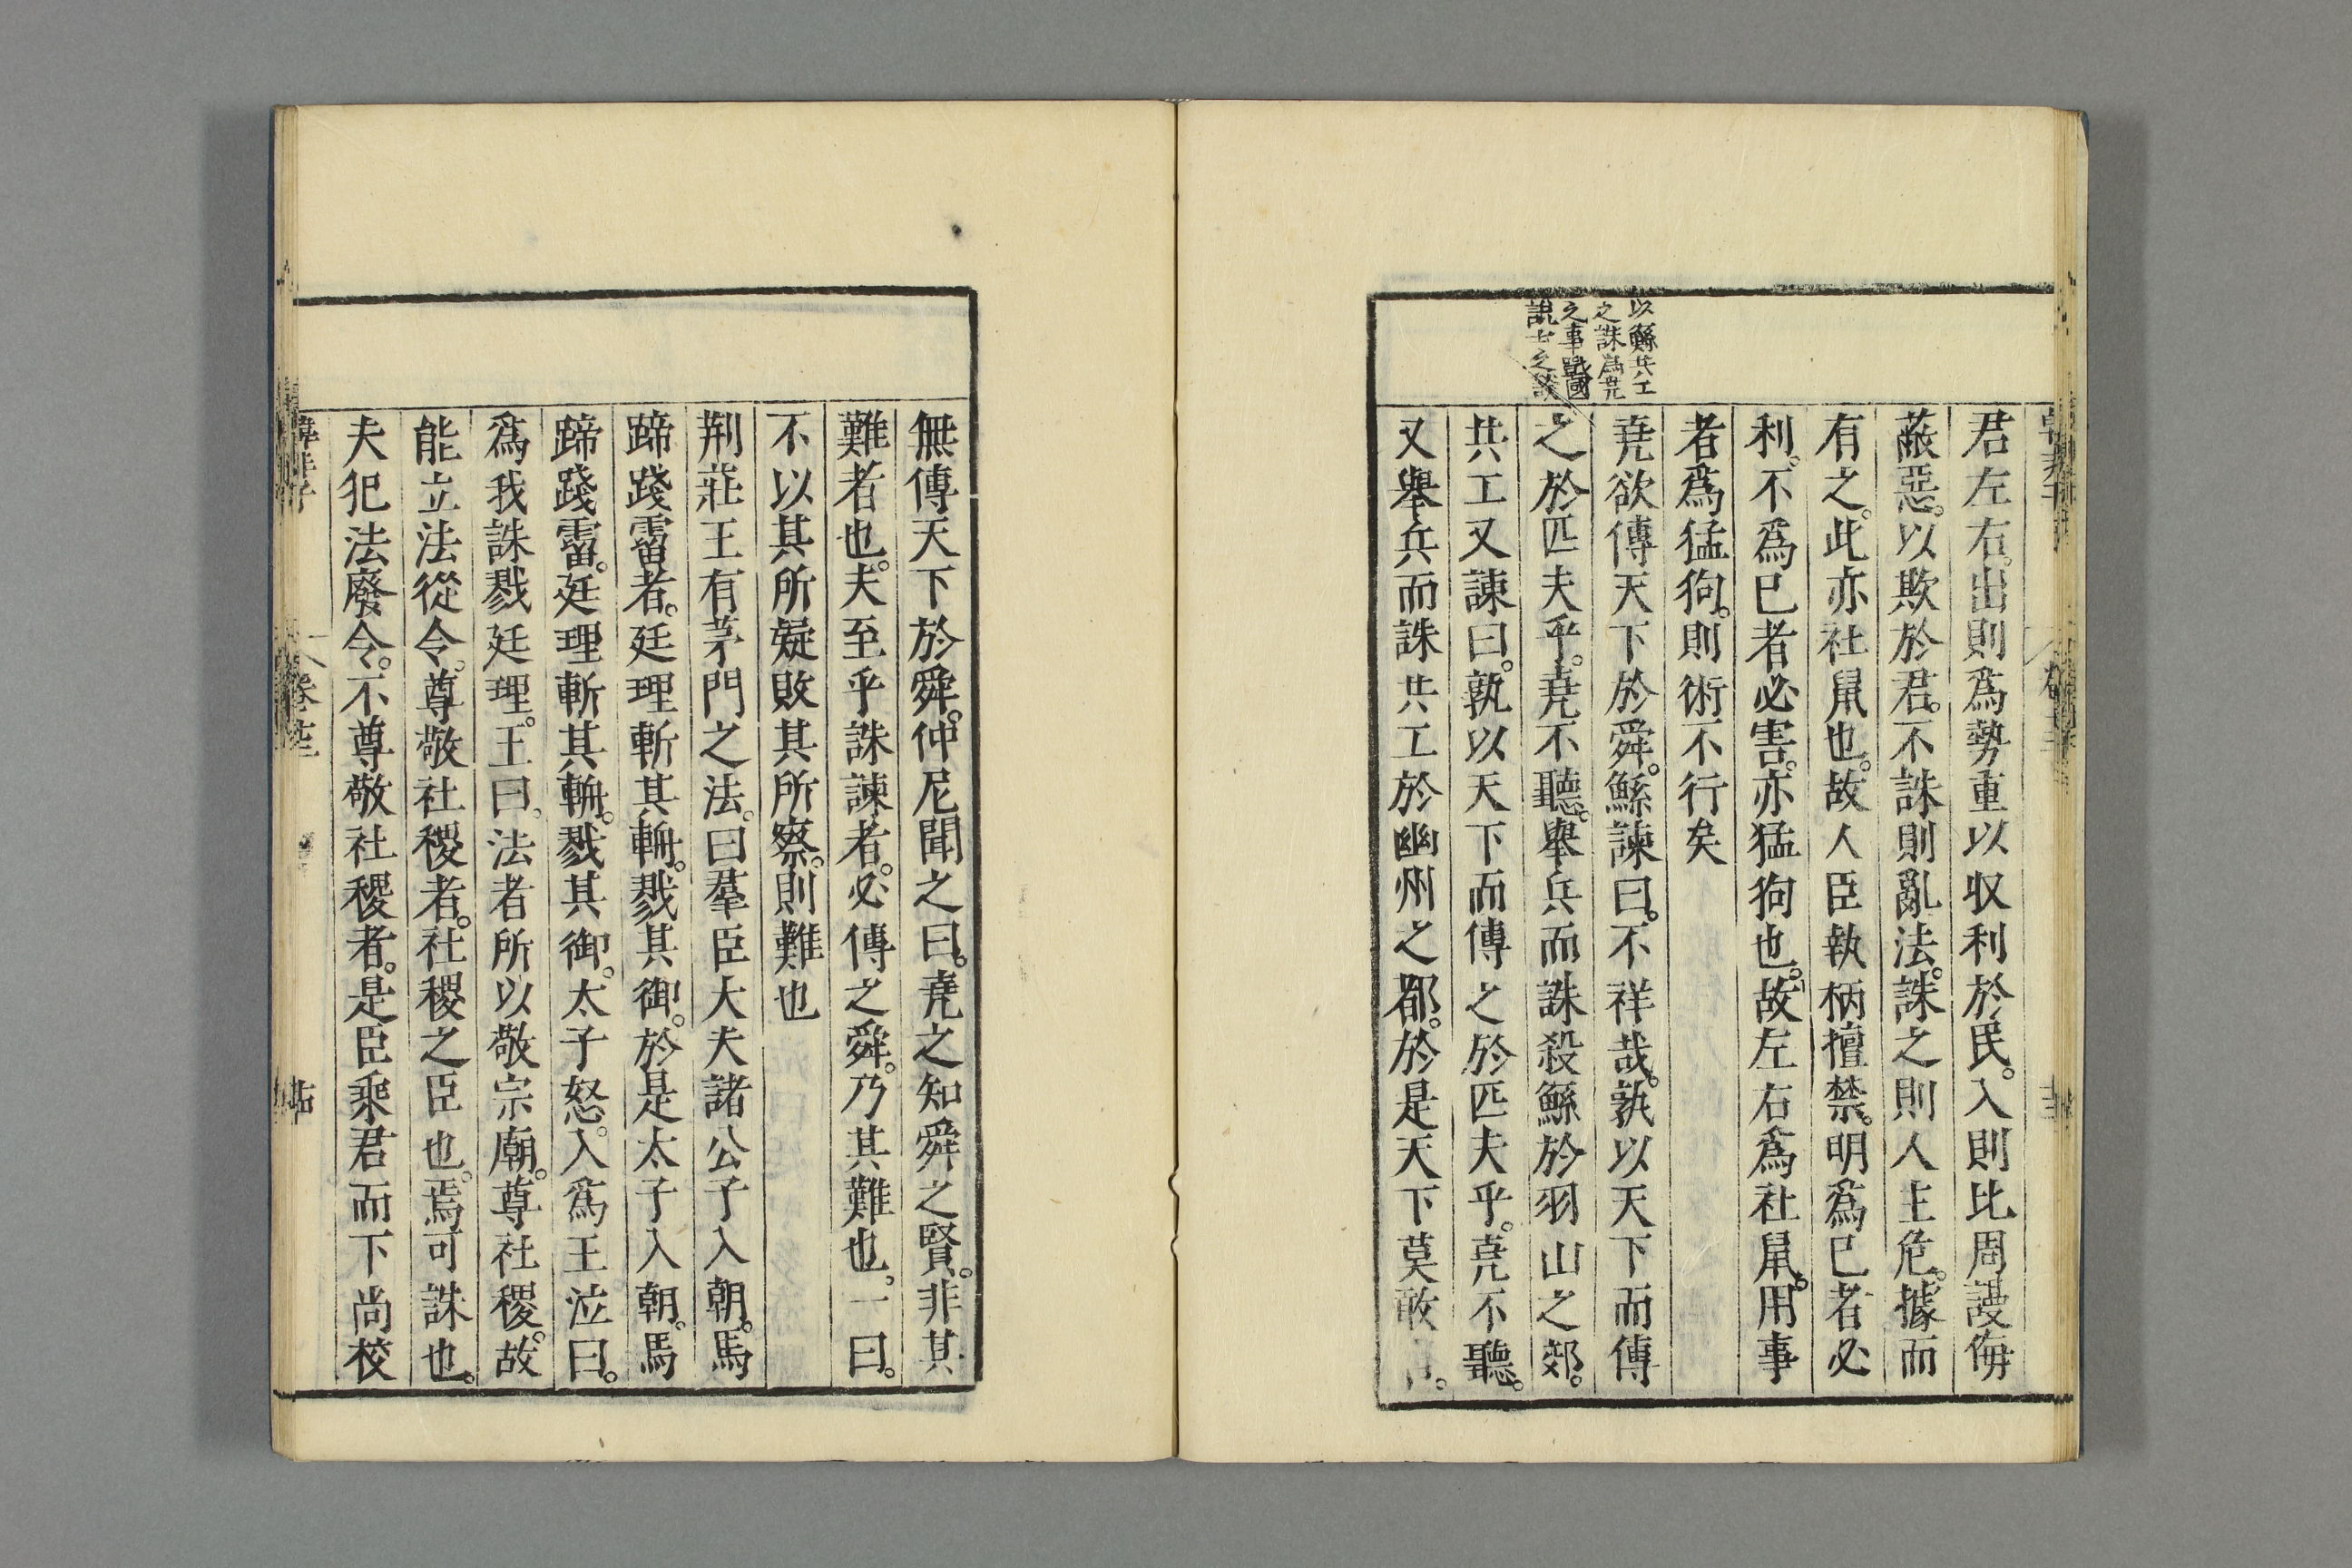 以鯀共工
之誅為堯
之事戰國
說士之談
君左右。出則爲勢重以収利於民。入則比周謾侮
蔽惡。以欺於君。不誅則亂法。誅之則人主危。據而
有之。此亦社鼠也。故人臣執柄擅禁。明爲已者必
利。不爲已者必害。亦猛狗也。故左右爲社鼠。用事
者爲猛狗。則術不行矣
堯欲傳天下於舜。鯀諫曰。不祥哉。孰以天下而傳
之於匹夫乎。堯不聽。舉兵而誅殺鯀於羽山之郊。
共工又諫曰。孰以天下而傳之於匹夫乎。堯不聽。
又舉兵而誅共工於幽州之都。於是天下莫敢
無傳天下於舜。仲尼聞之曰。堯之知舜之賢。非其
難者也。夫至乎誅諫者。必傳之舜。乃其難也。一曰。
不以其所疑敗其所察。則難也
荆莊王有茅門之法。曰羣臣大夫諸公子入朝。馬
蹄踐霤者。廷理斬其輈。戮其御。於是太子入朝。馬
蹄踐霤。廷理斬其輈。戮其御。太子怒。入爲王泣曰。
爲我誅戮廷理。王曰。法者所以敬宗廟。尊社稷。故
能立法從令。尊敬社稷者。社稷之臣也。焉可誅也。
夫犯法廢令。不尊敬社稷者。是臣乘君而下尚校
韓非子 卷十三